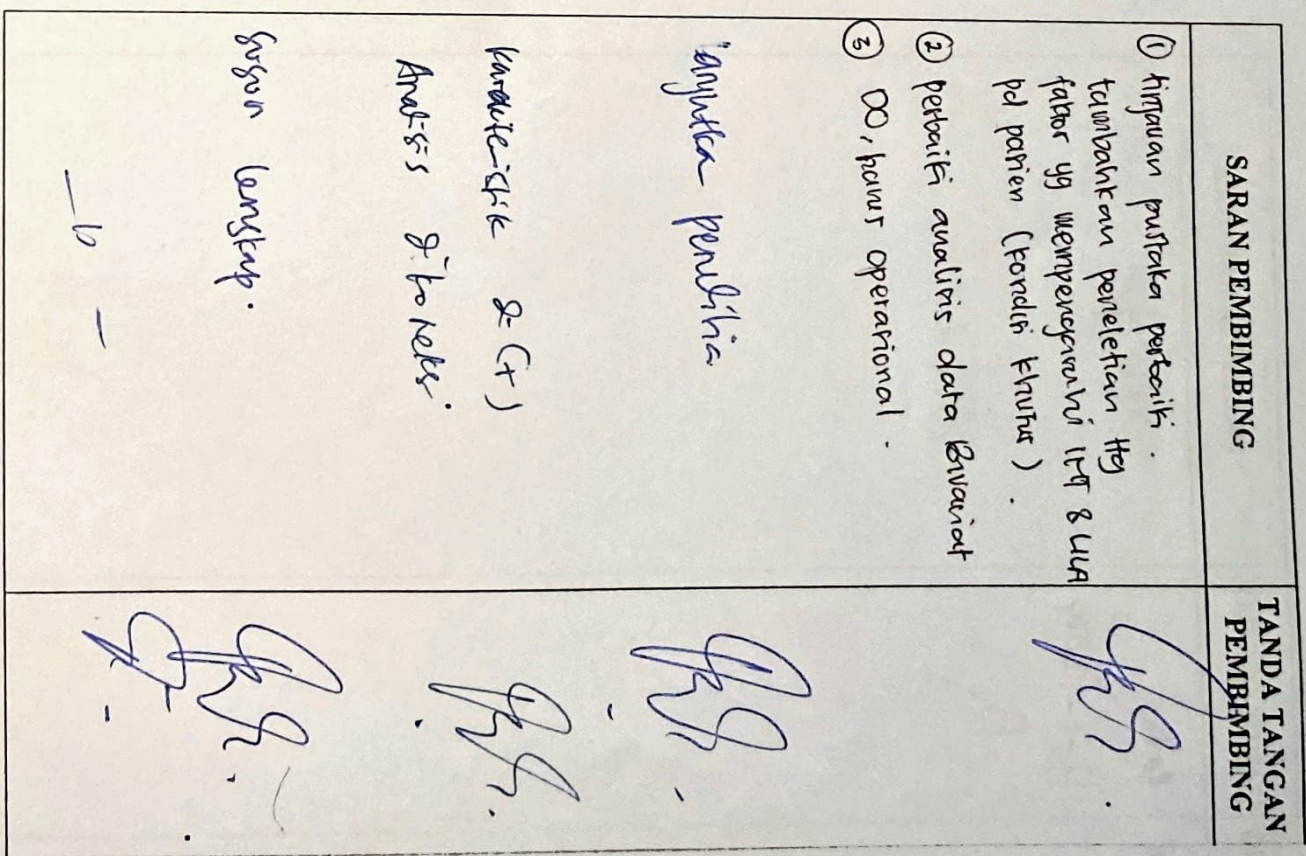 SARAN PEMBIMBING
TANDA TANGAN
PEMBIMBING
① tinjauan pustaka perbaiki.
tambahkan peneletian ttg
faktor yg mempengaruhi IMT & LILA
pd pasien (kondisi khusus).
② perbaiki analisis data Bivariat
③ DO, harus operasional.
lanjutka penelitia
karakteristik (+)
Analisis
susun lengkap.